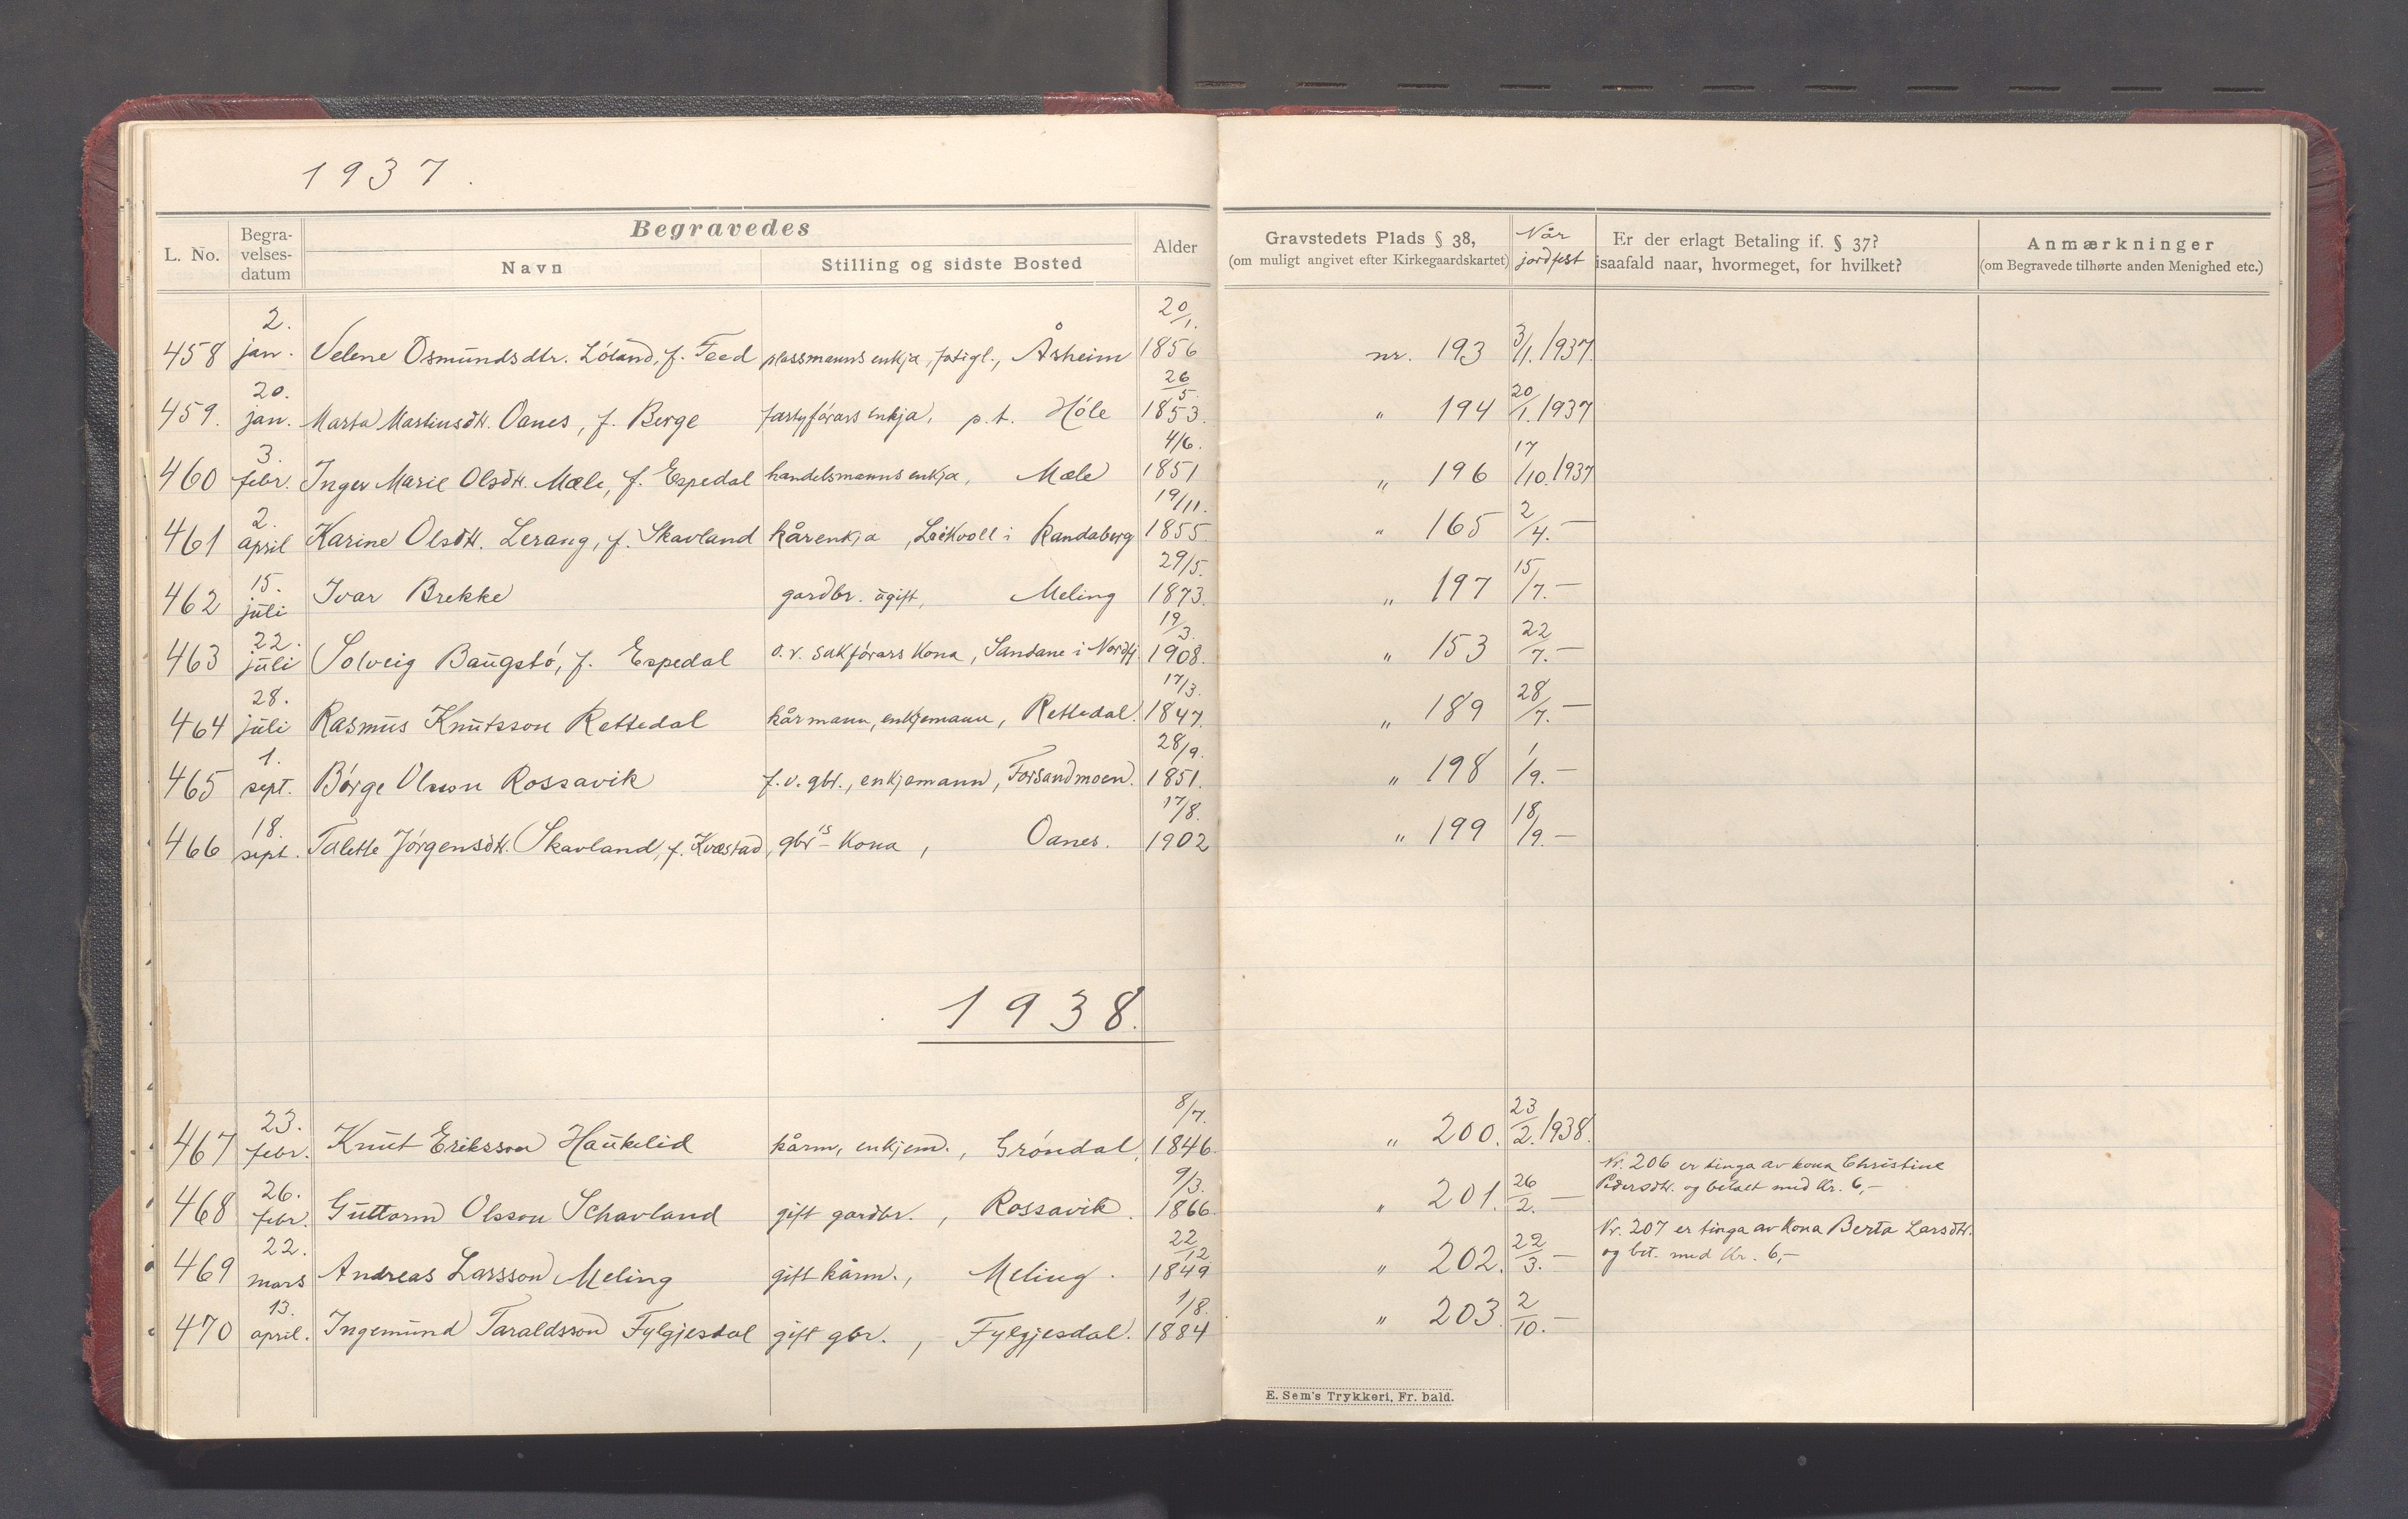 1937.
Begravedes
L. No. Begravelsesdatum Navn Stilling og sidste Bosted Alder Gravstedets Plads § 38, (om muligt angivet efter Kirkegaardskartet) Når jordfest Er der erlagt Betaling if. § 37? isaafald naar, hvormeget, for hvilket? Anmærkninger (om Begravede tilhørte anden Menighed etc.)
458 2. jan. Velene Osmundsdtr. Løland, f. Teed plassmanns enkja, fatigl., Åsheim 20/1. 1856 nr. 193 3/1. 1937.
459. 20. jan. Marta Martinsdtr. Oanes, f. Berge fartyførars enkja, p.t. Høle 26/5. 1853. " 194 20/1. 1937
460 3. febr. Inger Marie Olsdtr. Mæle, f. Espedal handelsmanns enkja, Mæle 4/6. 1851 " 196 17/10. 1937
461 2. april Karine Olsdtr. Lerang, f. Skavland kårenkja, i Randaberg 19/11. 1855. " 165 2/4. —
462 15. juli Ivar Brekke gardbr. ugift, Meling 29/5. 1873. " 197 15/7. —
463 22. juli Solveig Baugstø, f. Espedal o.r. sakførars kona, Sandane i Nordfj. 19/3. 1908. " 153 22/7. —
464 28. juli Rasmus Knutsson Rettedal kårmann, enkjemann, Rettedal. 17/3. 1847. " 189 28/7. —
465 1. sept. Børge Olsson Rossavik f.v. gbr., enkjemann, Forsandmoen. 28/9. 1851. " 198 1/9. —
466 18. sept. Talette Jørgensdtr. Skavland, f. Kvæstad, gbr's kona, Oanes. 17/8. 1902 " 199 18/9. —
1938.
467 23. febr. Knut Eriksson Haukelid kårm, enkjem., Grøndal, 8/7. 1846. " 200. 23/2. 1938.
468 26. febr. Guttorm Olsson Schavland gift gardbr., Rossavik. 9/3. 1866. " 201. 26/2. — Nr. 206 er tinga av kona Christine
Pedersdtr. og betalt med kr. 6,-
469 22. mars Andreas Larsson Meling gift kårm., Meling. 22/12 1849 " 202. 22/3. — Nr. 207 er tinga av kona Berta Larsdtr.
og bet. med kr. 6,-
470 13. april. Ingemund Taraldsson Fylgjesdal gift gbr., Fylgjesdal. 1/8. 1884 " 203. 2/10. —
E. Sem's Trykkeri, Fr. hald.